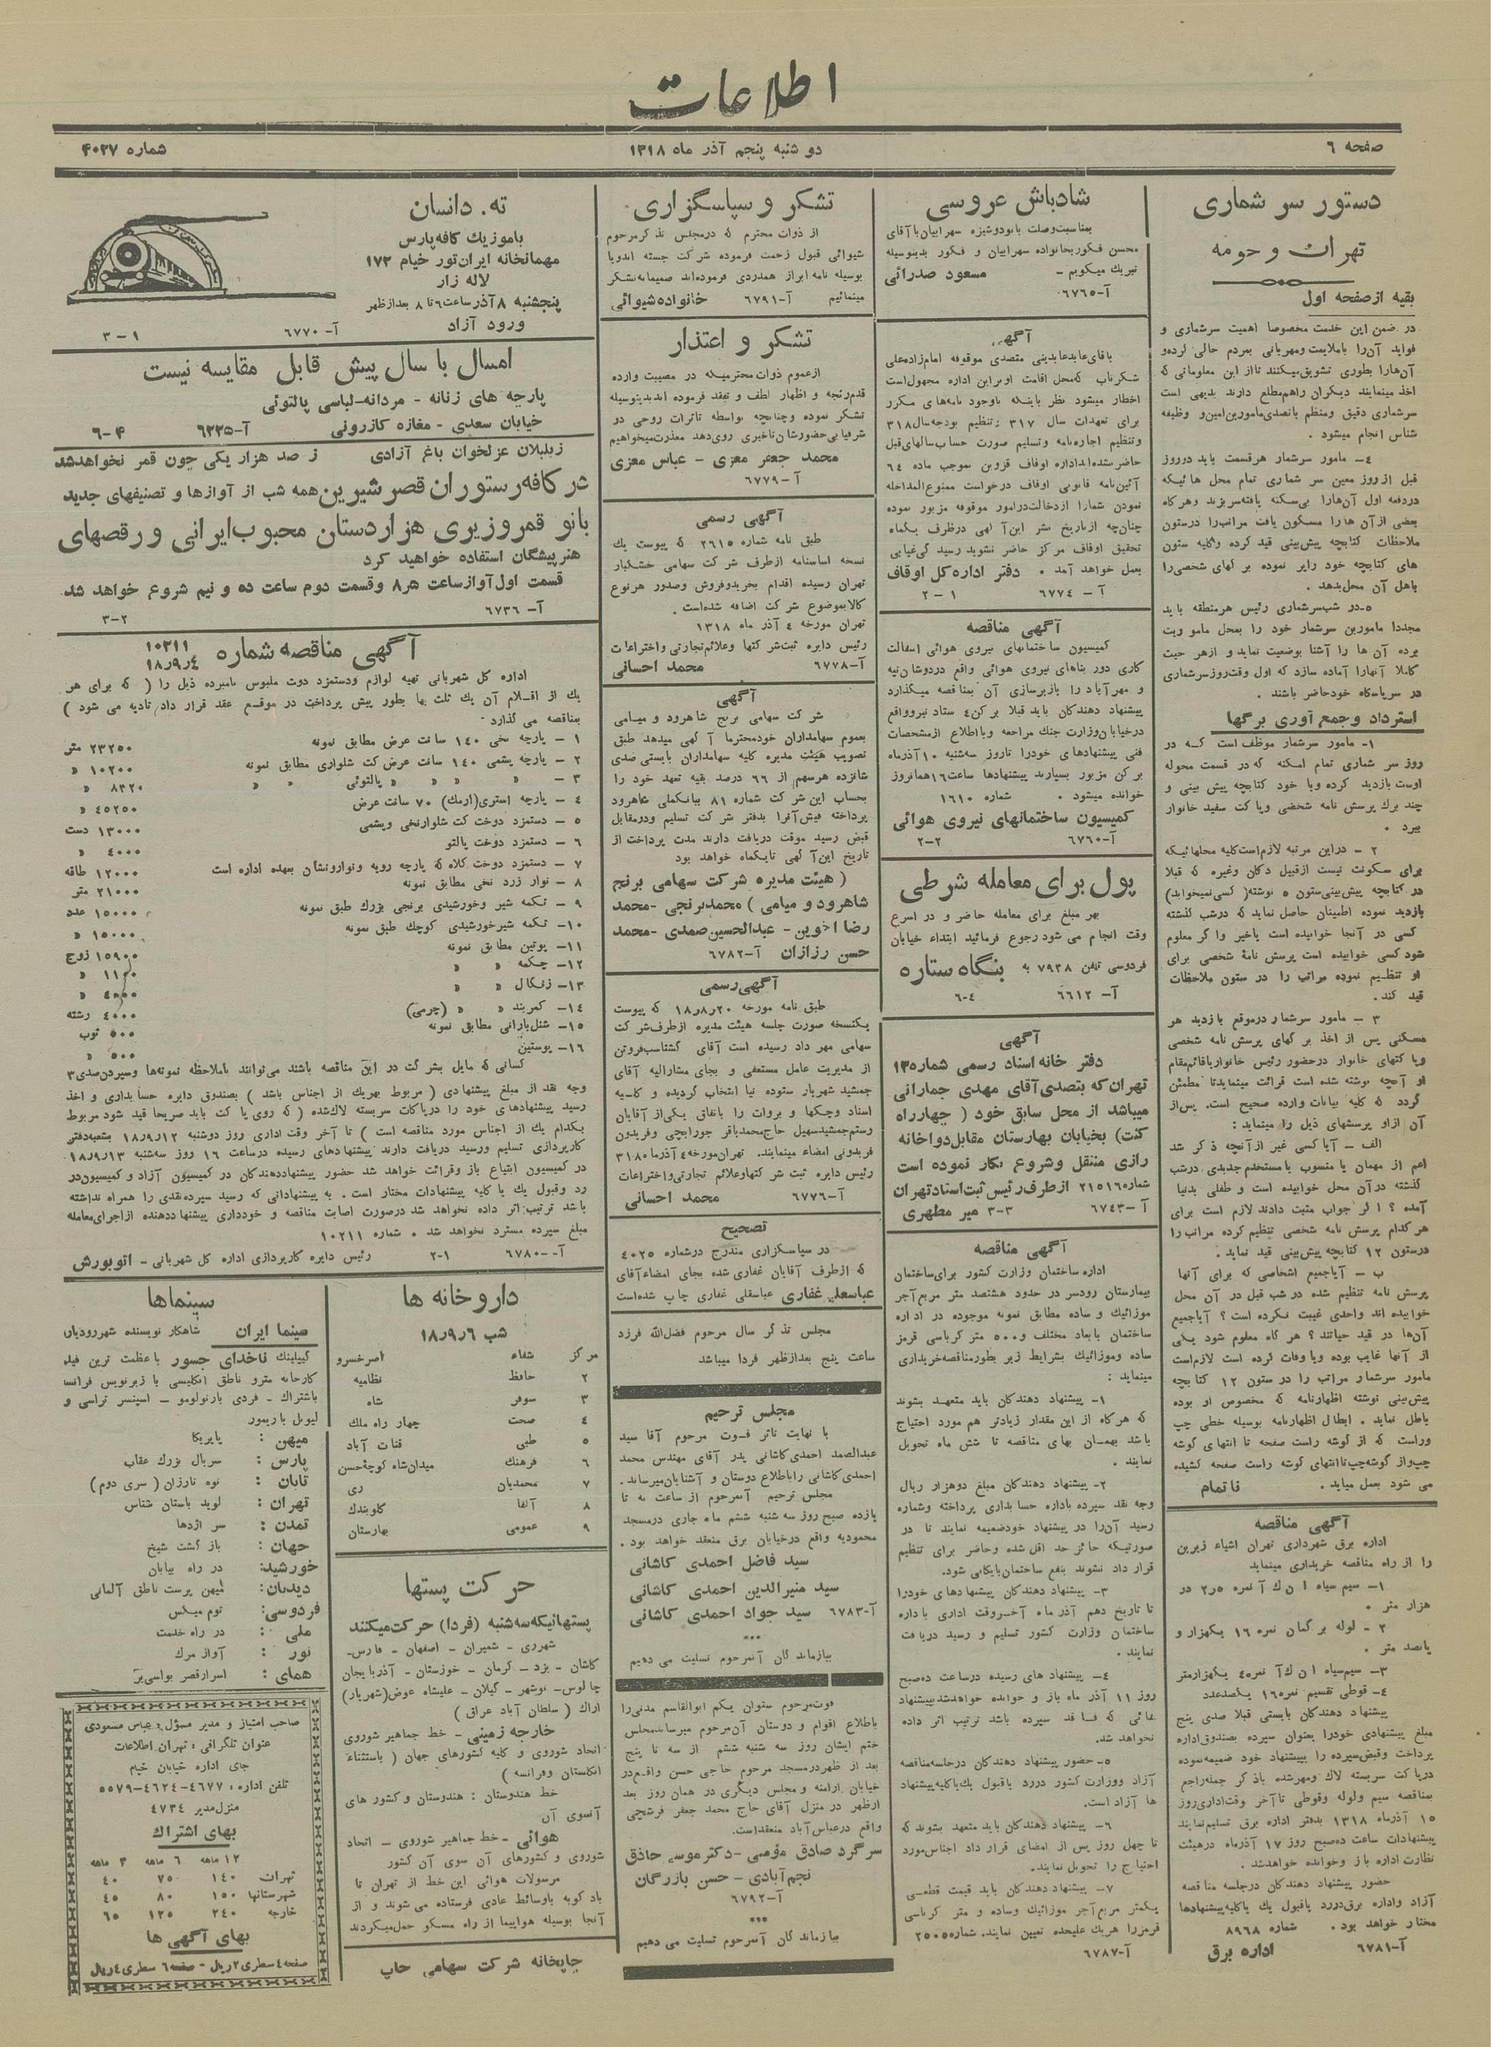 اطلاعات
صفحه ٦
دو شنبه پنجم آذر ماه ۱۳۱۸
شماره ۴۰۲۷
دستور سر شماری
تهران و حومه
بقیه از صفحه اول
در ضمن این خدمت مخصوصا اهمیت سرشماری و
فواید آن‌را با ملایمت و مهربانی بمردم حالی کرده و
آن‌هارا بطوری تشویق میکنند تا از این معلوماتی که
اخذ مینمایند دیگران راهم مطلع دارند بدیهی است
سرشماری دقیق و منظم با تصدی مامورین امین و وظیفه
شناس انجام میشود.
٤- مامور سرشمار هر قسمت باید در روز
قبل از روز معین سر شماری تمام محل هائیکه
در دفعه اول آن‌هارا بی‌سکنه یافته سر بزند و هر گاه
بعضی از آن هارا مسکون یافت مراتب را در ستون
ملاحظات کتابچه پیش‌بینی قید کرده و کلیه ستون
های کتابچه خود را پر نموده بر گهای شخصی را
باهل آن محل بدهد.
٥- در شب سرشماری رئیس هر منطقه باید
مجددا مامورین سرشمار خود را بمحل ماموریت
برده آن ها را آشنا بوضعیت نماید و از هر حیث
کاملا آنهارا آماده سازد که اول وقت روز سرشماری
در سر پاسگاه خود حاضر باشند.
استرداد و جمع آوری برگها
۱- مامور سرشمار موظف است که در
روز سر شماری تمام امکنه که در قسمت محوله
اوست بازدید کرده و با خود کتابچه پیش بینی و
چند برگ پرسش نامه شخصی و پاکت سفید خانوار
ببرد .
۲ - در این مرتبه لازم است کلیه محلهائیکه
برای سکونت نیست از قبیل دکان و غیره که قبلا
در کتابچه پیش‌بینی ستون ٥ نوشته (کسی نمیخوابد)
بازدید نموده اطمینان حاصل نماید که در شب گذشته
کسی در آنجا خوابیده است یا خیر و اگر معلوم
شود کسی خوابیده است پرسش نامهٔ شخصی برای
او تنظیم نموده مراتب را در ستون ملاحظات
قید کند.
۳ - مامور سرشمار در موقع بازدید هر
مسکنی پس از اخذ بر گهای پرسش نامه شخصی
و پاکتهای خانوار در حضور رئیس خانوار یا قائم‌مقام
او آنچه نوشته شده است قرائت مینماید تا مطمئن
گردد که کلیه بیانات وارده صحیح است. پس از
آن از او پرسشهای ذیل را مینماید:
الف - آیا کسی غیر از آنچه ذکر شد
اعم از مهمان یا منسوب یا مستخدم جدیدی در شب
گذشته در آن محل خوابیده است و طفلی بدنیا
آمده ؟ اگر جواب مثبت دادند لازم است برای
هر کدام پرسش نامه شخصی تنظیم کرده مراتب را
در ستون ۱۲ کتابچه پیش‌بینی قید نماید .
ب - آیا جمیع اشخاصی که برای آنها
پرسش نامه تنظیم شده در شب قبل در آن محل
خوابیده اند و احدی غیبت نکرده است ؟ آیا جمیع
آن‌ها در قید حیاتند ؟ هر گاه معلوم شود یکی
از آنها غایب بوده و یا وفات کرده است لازم است
مامور سرشمار مراتب را در ستون ۱۲ کتابچه
پیش‌بینی نوشته اظهارنامه که مخصوص او بوده
باطل نماید . ابطال اظهارنامه بوسیله خطی چپ
و راست که از گوشه راست صفحه تا انتهای گوشه
چپ و از گوشه چپ تا انتهای گوشه راست صفحه کشیده
می شود بعمل میاید . ناتمام
آگهی مناقصه
اداره برق شهرداری تهران اشیاء زیرین
را از راه مناقصه خریداری مینماید
۱- سیم سیاه ان ك آ نمره ۲٫٥ در
هزار متر .
۲ - لوله بر گمان نمره ۱٦ یکهزار و
پانصد متر .
۳- سیم سیاه ان ك آ نمره ٤ یکهزارمتر
٤- قوطی تقسیم نمره ۱٦ یکصد عدد
پیشنهاد دهندگان بایستی قبلا صدی پنج
مبلغ پیشنهادی خودرا بعنوان سپرده بصندوق اداره
پرداخت و قبض سپرده را بپیشنهاد خود ضمیمه نموده
در پاکت سربسته لاك و مهر شده با ذکر جمله راجع
بمناقصه سیم و لوله و قوطی تا آخر وقت اداری روز
۱٥ آذرماه ۱۳۱۸ بدفتر اداره برق تسلیم نمایند
پیشنهادات ساعت ده صبح روز ۱۷ آذرماه در هیئت
نظارت اداره باز و خوانده خواهد شد.
حضور پیشنهاد دهندگان در جلسه مناقصه
آزاد و اداره برق در رد یا قبول یك یا کلیه پیشنهادها
مختار خواهد بود . شماره ۸۹٦۸
آ-٦۷۸۱ اداره برق
شادباش عروسی
بمناسبت وصلت بانو دوشیزه سهرابیان با آقای
محسن فکور بخانواده سهرابیان و فکور بدینوسیله
تبریك میگویم - مسعود صدرائی
آ-٦۷٦٥
آگهی
بآقای عابد عابدینی متصدی موقوفه امام زاده علی
شکرناب که محل اقامت او بر این اداره مجهول است
اخطار میشود نظر باینکه باوجود نامه‌های مکرر
برای تعهدات سال ۳۱۷ و تنظیم بودجه سال ۳۱۸
و تنظیم اجاره نامه و تسلیم صورت حساب سالهای قبل
حاضر نشده اید اداره اوقاف قزوین بموجب ماده ٦٤
آئین‌نامه قانونی اوقاف درخواست ممنوع المداخله
نمودن شمارا از دخالت در امور موقوفه مزبور نموده
چنان‌چه از تاریخ نشر این آگهی در ظرف یکماه
تحقیق اوقاف مرکز حاضر نشوید رسید گی غیابی
بعمل خواهد آمد . دفتر اداره کل اوقاف
آ - ٦۷۷٤ ۱ - ۲
آگهی مناقصه
کمیسیون ساختمانهای نیروی هوائی اسفالت
کاری دور بناهای نیروی هوائی واقع در دوشان‌تپه
و مهرآباد را با زیرسازی آن بمناقصه میگذارد
پیشنهاد دهندگان باید قبلا برکن ٤ ستاد نیرو واقع
در خیابان وزارت جنك مراجعه و با اطلاع از مشخصات
فنی پیشنهادهای خودرا تا روز سه‌شنبه ۱۰ آذرماه
برکن مزبور بسپارند پیشنهادها ساعت ۱٦ همانروز
خوانده میشود . شماره ۱٦۱۰
کمیسیون ساختمانهای نیروی هوائی
آ-٦۷٦۰ ۲-۲
پول برای معامله شرطی
بهر مبلغ برای معامله حاضر و در اسرع
وقت انجام می شود رجوع فرمائید ابتداء خیابان
فردوسی تلفن ۷۹۳۸ به بنگاه ستاره
آ- ٦٦۱۲ ٤-٦
آگهی
دفتر خانه اسناد رسمی شماره ۱۳
تهران که بتصدی آقای مهدی جمارانی
میباشد از محل سابق خود ( چهارراه
کنت) بخیابان بهارستان مقابل دواخانه
رازی منتقل و شروع بکار نموده است
شماره ۲۱٥۱٦ از طرف رئیس ثبت اسناد تهران
آ - ٦۷٤۳ ۳-۳ میر مطهری
آگهی مناقصه
اداره ساختمان وزارت کشور برای ساختمان
بیمارستان رودسر در حدود هشتصد متر مربع آجر
موزائیك و ساده مطابق نمونه موجوده در اداره
ساختمان با ابعاد مختلف و ٥۰۰ متر کرباسی قرمز
ساده و موزائیك بشرایط زیر بطور مناقصه خریداری
مینماید :
۱- پیشنهاد دهندگان باید متعهد بشوند
که هر گاه از این مقدار زیادتر هم مورد احتیاج
باشد بهمان بهای مناقصه تا شش ماه تحویل
نمایند .
۲- پیشنهاد دهندگان مبلغ دوهزار ریال
وجه نقد سپرده باداره حسابداری پرداخته و شماره
رسید آن‌را در پیشنهاد خود ضمیمه نمایند تا در
صورتیکه حائز حد اقل شده و حاضر برای تنظیم
قرار داد نشوند بنفع ساختمان بایگانی شود.
۳- پیشنهاد دهندگان پیشنهادهای خودرا
تا تاریخ دهم آذر ماه آخر وقت اداری باداره
ساختمان وزارت کشور تسلیم و رسید دریافت
نمایند .
٤- پیشنهاد های رسیده در ساعت ده صبح
روز ۱۱ آذر ماه باز و خوانده خواهد شد بپیشنهاد
هائی که فاقد سپرده باشد ترتیب اثر داده
نخواهد شد.
٥- حضور پیشنهاد دهندگان در جلسه مناقصه
آزاد و وزارت کشور در رد یا قبول یك یا کلیه پیشنهاد
ها آزاد است.
٦- پیشنهاد دهندگان باید متعهد بشوند که
تا چهل روز پس از امضای قرار داد اجناس مورد
احتیاج را تحویل نمایند.
۷- پیشنهاد دهندگان باید قیمت قطعی
یکمتر مربع آجر موزائیك و ساده و متر کرباسی
قرمز را هر یك علیحده تعیین نمایند. شماره ۲٥۰۰۵
آ-٦۷۸۷
تشکر و سپاسگزاری
از ذوات محترم که در مجلس تذکر مرحوم
شیوائی قبول زحمت فرموده شرکت جسته اند و یا
بوسیله نامه ابراز همدردی فرموده‌اند صمیمانه تشکر
مینمائیم آ-٦۷۹۱ خانواده شیوائی
تشکر و اعتذار
از عموم ذوات محترمیکه در مصیبت وارده
قدم رنجه و اظهار لطف و تفقد فرموده اند بدینوسیله
تشکر نموده و چنانچه بواسطه تاثرات روحی در
شرفیابی حضورشان تاخیری روی‌دهد معذرت میخواهیم
محمد جعفر معزی - عباس معزی
آ-٦۷۷۹
آگهی رسمی
طبق نامه شماره ۲٦۱٥ که بپیوست یك
نسخه اساسنامه از طرف شرکت سهامی خشکبار
تهران رسیده اقدام بخرید و فروش و صدور هر نوع
کالا بموضوع شرکت اضافه شده است .
تهران مورخه ٤ آذر ماه ۱۳۱۸
رئیس دایره ثبت شرکتها و علائم تجارتی و اختراعات
آ-٦۷۷۸ محمد احسانی
آگهی
شرکت سهامی برنج شاهرود و میامی
بعموم سهامداران خود محترما آگهی میدهد طبق
تصویب هیئت مدیره کلیه سهامداران بایستی صدی
شانزده هر سهم از ٦٦ درصد بقیه تعهد خود را
بحساب این شرکت شماره ۸۱ ببانک ملی شاهرود
پرداخته فیش آنرا بدفتر شرکت تسلیم و در مقابل
قبض رسید موقت دریافت دارند مدت پرداخت از
تاریخ این آگهی تا یکماه خواهد بود
( هیئت مدیره شرکت سهامی برنج
شاهرود و میامی ) محمد برنجی -محمد
رضا اخوین - عبدالحسین صمدی -محمد
حسن رزازان آ-٦۷۸۲
آگهی رسمی
طبق نامه مورخه ۱۸٫۸٫۲۰ که بپیوست
یکنسخه صورت جلسه هیئت مدیره از طرف شرکت
سهامی مهر داد رسیده است آقای گشتاسب فروتن
از مدیریت عامل مستعفی و بجای مشارالیه آقای
جمشید شهریار ستوده نیا انتخاب گردیده و کلیه
اسناد و چکها و بروات را باتفاق یکی از آقایان
رستم جمشید سهیل حاج محمدباقر جورابچی و فریدون
فریدونی امضاء مینمایند. تهران مورخه ٤ آذرماه ۳۱۸
رئیس دایره ثبت شرکتها و علائم تجارتی و اختراعات
آ-٦۷۷٦ محمد احسانی
تصحیح
در سپاسگزاری مندرج در شماره ٤۰۲٥
که از طرف آقایان غفاری شده بجای امضاء آقای
عباسعلی غفاری عباسقلی غفاری چاپ شده است
مجلس تذکر سال مرحوم فضل‌الله فرزد
ساعت پنج بعدازظهر فردا میباشد
مجلس ترحیم
با نهایت تاثر فوت مرحوم آقا سید
عبدالصمد احمدی کاشانی پدر آقای مهندس محمد
احمدی کاشانی را باطلاع دوستان و آشنایان میرساند.
مجلس ترحیم آنمرحوم از ساعت نه تا
یازده صبح روز سه شنبه ششم ماه جاری در مسجد
محمودیه واقع در خیابان برق منعقد خواهد بود .
سید فاضل احمدی کاشانی
سید منیرالدین احمدی کاشانی
آ-٦۷۸۳ سید جواد احمدی کاشانی
***
ببازماندگان آنمرحوم تسلیت می دهیم
فوت مرحوم ستوان یکم ابوالقاسم مدنی را
باطلاع اقوام و دوستان آن مرحوم میرساند مجلس
ختم ایشان روز سه شنبه ششم از سه تا پنج
بعد از ظهر در مسجد مرحوم حاجی حسن واقع در
خیابان ارامنه و مجلس دیگری در همان روز بعد
ازظهر در منزل آقای حاج محمد جعفر فرشچی
واقع در عباس آباد منعقد است.
سرگرد صادق مؤنسی -دکتر موسی حاذق
نجم‌آبادی - حسن بازرگان
آ-٦۷۹۲
***
ببازماندگان آنمرحوم تسلیت می دهیم
ته. دانسان
باموزیك کافه پارس
مهمانخانه ایران‌تور خیام ۱۷۲
لاله زار
پنجشنبه ۸ آذر ساعت ٦ تا ۸ بعدازظهر
ورود آزاد
آ- ٦۷۷۰ ۱ - ۳
امسال با سال پیش قابل مقایسه نیست
پارچه های زنانه - مردانه -لباسی پالتوئی
خیابان سعدی - مغازه کازرونی
آ-٦۲۳٥ ٤-٦
ز بلبلان غزلخوان باغ آزادی ز صد هزار یکی چون قمر نخواهد شد
در کافه رستوران قصر شیرین همه شب از آوازها و تصنیفهای جدید
بانو قمر وزیری هزار دستان محبوب ایرانی و رقصهای
هنرپیشگان استفاده خواهید کرد
قسمت اول آواز ساعت هر ۸ و قسمت دوم ساعت ده و نیم شروع خواهد شد
آ- ٦۷۳٦ ۲-۳
آگهی مناقصه شماره ۱۰۲۱۱
۱۸٫۹٫٤
اداره کل شهربانی تهیه لوازم و دستمزد دوخت ملبوس نامبرده ذیل را ( که برای هر
یك از اقلام آن یك ثلث بها بطور پیش پرداخت در موقع عقد قرار داد تادیه می شود )
بمناقصه می گذارد .
۱ - پارچه نخی ۱٤۰ سانت عرض مطابق نمونه ۲۳۲٥۰ متر
۲ - پارچه پشمی ۱٤۰ سانت عرض کت شلواری مطابق نمونه ۱۰۲۰۰ »
۳ - » » » » پالتوئی » » ۸۳۲۰ »
٤ - پارچه استری (ارمك) ۷۰ سانت عرض ٤٥۲٥۰ »
٥ - دستمزد دوخت کت شلوار نخی و پشمی ۱۳۰۰۰ دست
٦ - دستمزد دوخت پالتو ٤۰۰۰ »
۷ - دستمزد دوخت کلاه که پارچه رویه و نوار و نشان بعهده اداره است ۱۲۰۰۰ طاقه
۸ - نوار زرد نخی مطابق نمونه ۲۱۰۰۰ متر
۹ - تکمه شیر و خورشیدی برنجی بزرك طبق نمونه ۱٥۰۰۰ عدد
۱۰- تکمه شیر خورشیدی کوچك طبق نمونه ۱٥۰۰۰ »
۱۱- پوتین مطابق نمونه ۱٥۹۰۰ زوج
۱۲- چکمه » » ۱۱۰۰ »
۱۳- زنگال » » ٤۰۰۰ »
۱٤- کمربند » » (چرمی) ٤۰۰۰ رشته
۱٥- شنل بارانی مطابق نمونه ٥۰۰ ثوب
۱٦- پوستین ٥۰۰ »
کسانی که مایل بشرکت در این مناقصه باشند می‌توانند با ملاحظه نمونه‌ها و سپردن صدی ۳
وجه نقد از مبلغ پیشنهادی ( مربوط بهریك از اجناس باشد ) بصندوق دایره حسابداری و اخذ
رسید پیشنهادهای خود را در پاکات سربسته لاك شده ( که روی پاکت باید صریحا قید شود مربوط
بکدام یك از اجناس مورد مناقصه است ) تا آخر وقت اداری روز دوشنبه ۱۸٫۹٫۱۲ بشعبه دفتری
کارپردازی تسلیم و رسید دریافت دارند پیشنهادهای رسیده در ساعت ۱٦ روز سه‌شنبه ۱۸٫۹٫۱۳
در کمیسیون ابتیاع باز و قرائت خواهد شد حضور پیشنهاد دهندگان در کمیسیون آزاد و کمیسیون در
رد و قبول یك یا کلیه پیشنهادات مختار است . به پیشنهاداتی که رسید سپرده نقدی را همراه نداشته
باشد ترتیب اثر داده نخواهد شد در صورت اصابت مناقصه و خودداری پیشنهاد دهنده از اجرای معامله
مبلغ سپرده مسترد نخواهد شد . شماره ۱۰۲۱۱
آ- ٦۷۸۰ ۱-۲ رئیس دایره کارپردازی اداره کل شهربانی - اتوبورش
داروخانه ها
شب ۱۸٫۹٫٦
مرکز شفاء ناصرخسرو
۲ حافظ نظامیه
۳ سوفر شاه
٤ صحت چهار راه ملك
٥ طبی قنات آباد
٦ فرهنك میدان شاه کوچهٔ حسن
۷ محمدیان ری
۸ آلفا گلوبندك
۹ عمومی بهارستان
حرکت پستها
پستهائیکه سه‌شنبه (فردا) حرکت میکنند
شهرری - شمیران - اصفهان - فارس-
کاشان - یزد - کرمان - خوزستان - آذربایجان
چالوس - نوشهر - گیلان - علیشاه عوض(شهریار)
اراك ( سلطان آباد عراق )
خارجه زمینی - خط جماهیر شوروی
اتحاد شوروی و کلیه کشورهای جهان ( باستثناء
انگلستان و فرانسه )
خط هندوستان : هندوستان و کشور های
آنسوی آن
هوائی - خط جماهیر شوروی - اتحاد
شوروی و کشورهای آن سوی آن کشور
مرسولات هوائی این خط از تهران تا
بادکوبه باوسائط عادی فرستاده می شوند و از
آنجا بوسیله هواپیما از راه مسکو حمل میگردند
چاپخانه شرکت سهامی چاپ
سینماها
سینما ایران شاهکار نویسنده شهیر رودیارد
کیپلینك ناخدای جسور با عظمت ترین فیلم
کارخانه مترو ناطق انگلیسی با زیرنویس فرانسه
باشتراك - فردی بارتولومو - اسپنسر تراسی و
لیونل باریمور
میهن : پاپریکا
پارس : سریال بزرك عقاب
تابان : نوه تارزان ( سری دوم )
تهران : لوید باستان شناس
تمدن : سر اژدها
جهان : بازگشت شیخ
خورشید: در راه بیابان
دیدبان: میهن پرست ناطق آلمانی
فردوسی: توم میکس
ملی : در راه خدمت
نور : آواز مرك
همای : اسرار قصر بواسی‌بر
صاحب امتیاز و مدیر مسؤل ؛ عباس مسعودی
عنوان تلگرافی ؛ تهران اطلاعات
جای اداره خیابان خیام
تلفن اداره : ٤٦۷۷-٤٦۲٤-٥٥۷۹
منزل مدیر ٤۷۳٤
بهای اشتراك
۱۲ ماهه ٦ ماهه ۳ ماهه
تهران ۱٤۰ ۷٥ ٤۰
شهرستانها ۱٥۰ ۸۰ ٤٥
خارجه ۲٤۰ ۱۲٥ ٦٥
بهای آگهی ها
صفحه ٤ سطری ۲ ریال - صفحه ٦ سطری ٤ ریال